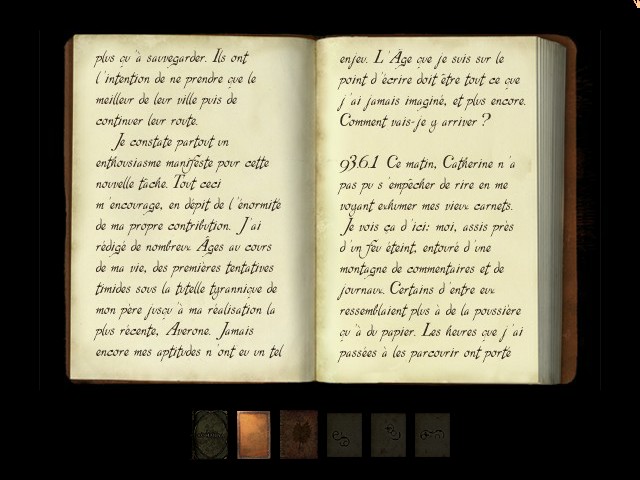 plus qu'à sauvegarder. Ils ont
l'intention de ne prendre que le
meilleur de leur ville puis de
continuer leur route.
Je constate partout un
enthousiasme manifeste pour cette
nouvelle tâche. Tout ceci
m'encourage, en dépit de l'énormité
de ma propre contribution. J'ai
rédigé de nombreux Âges au cours
de ma vie, des premières tentatives
timides sous la tutelle tyrannique de
mon père jusqu'à ma réalisation la
plus récente, Averone. Jamais
encore mes aptitudes n'ont eu un tel
enjeu. L'Âge que je suis sur le
point d'écrire doit être tout ce que
j'ai jamais imaginé, et plus encore.
Comment vais-je y arriver ?
93.6.1 Ce matin, Catherine n'a
pas pu s'empêcher de rire en me
voyant exhumer mes vieux carnets.
Je vois ça d'ici: moi, assis près
d'un feu éteint, entouré d'une
montagne de commentaires et de
journaux. Certains d'entre eux
ressemblaient plus à de la poussière
qu'à du papier. Les heures que j'ai
passées à les parcourir ont porté